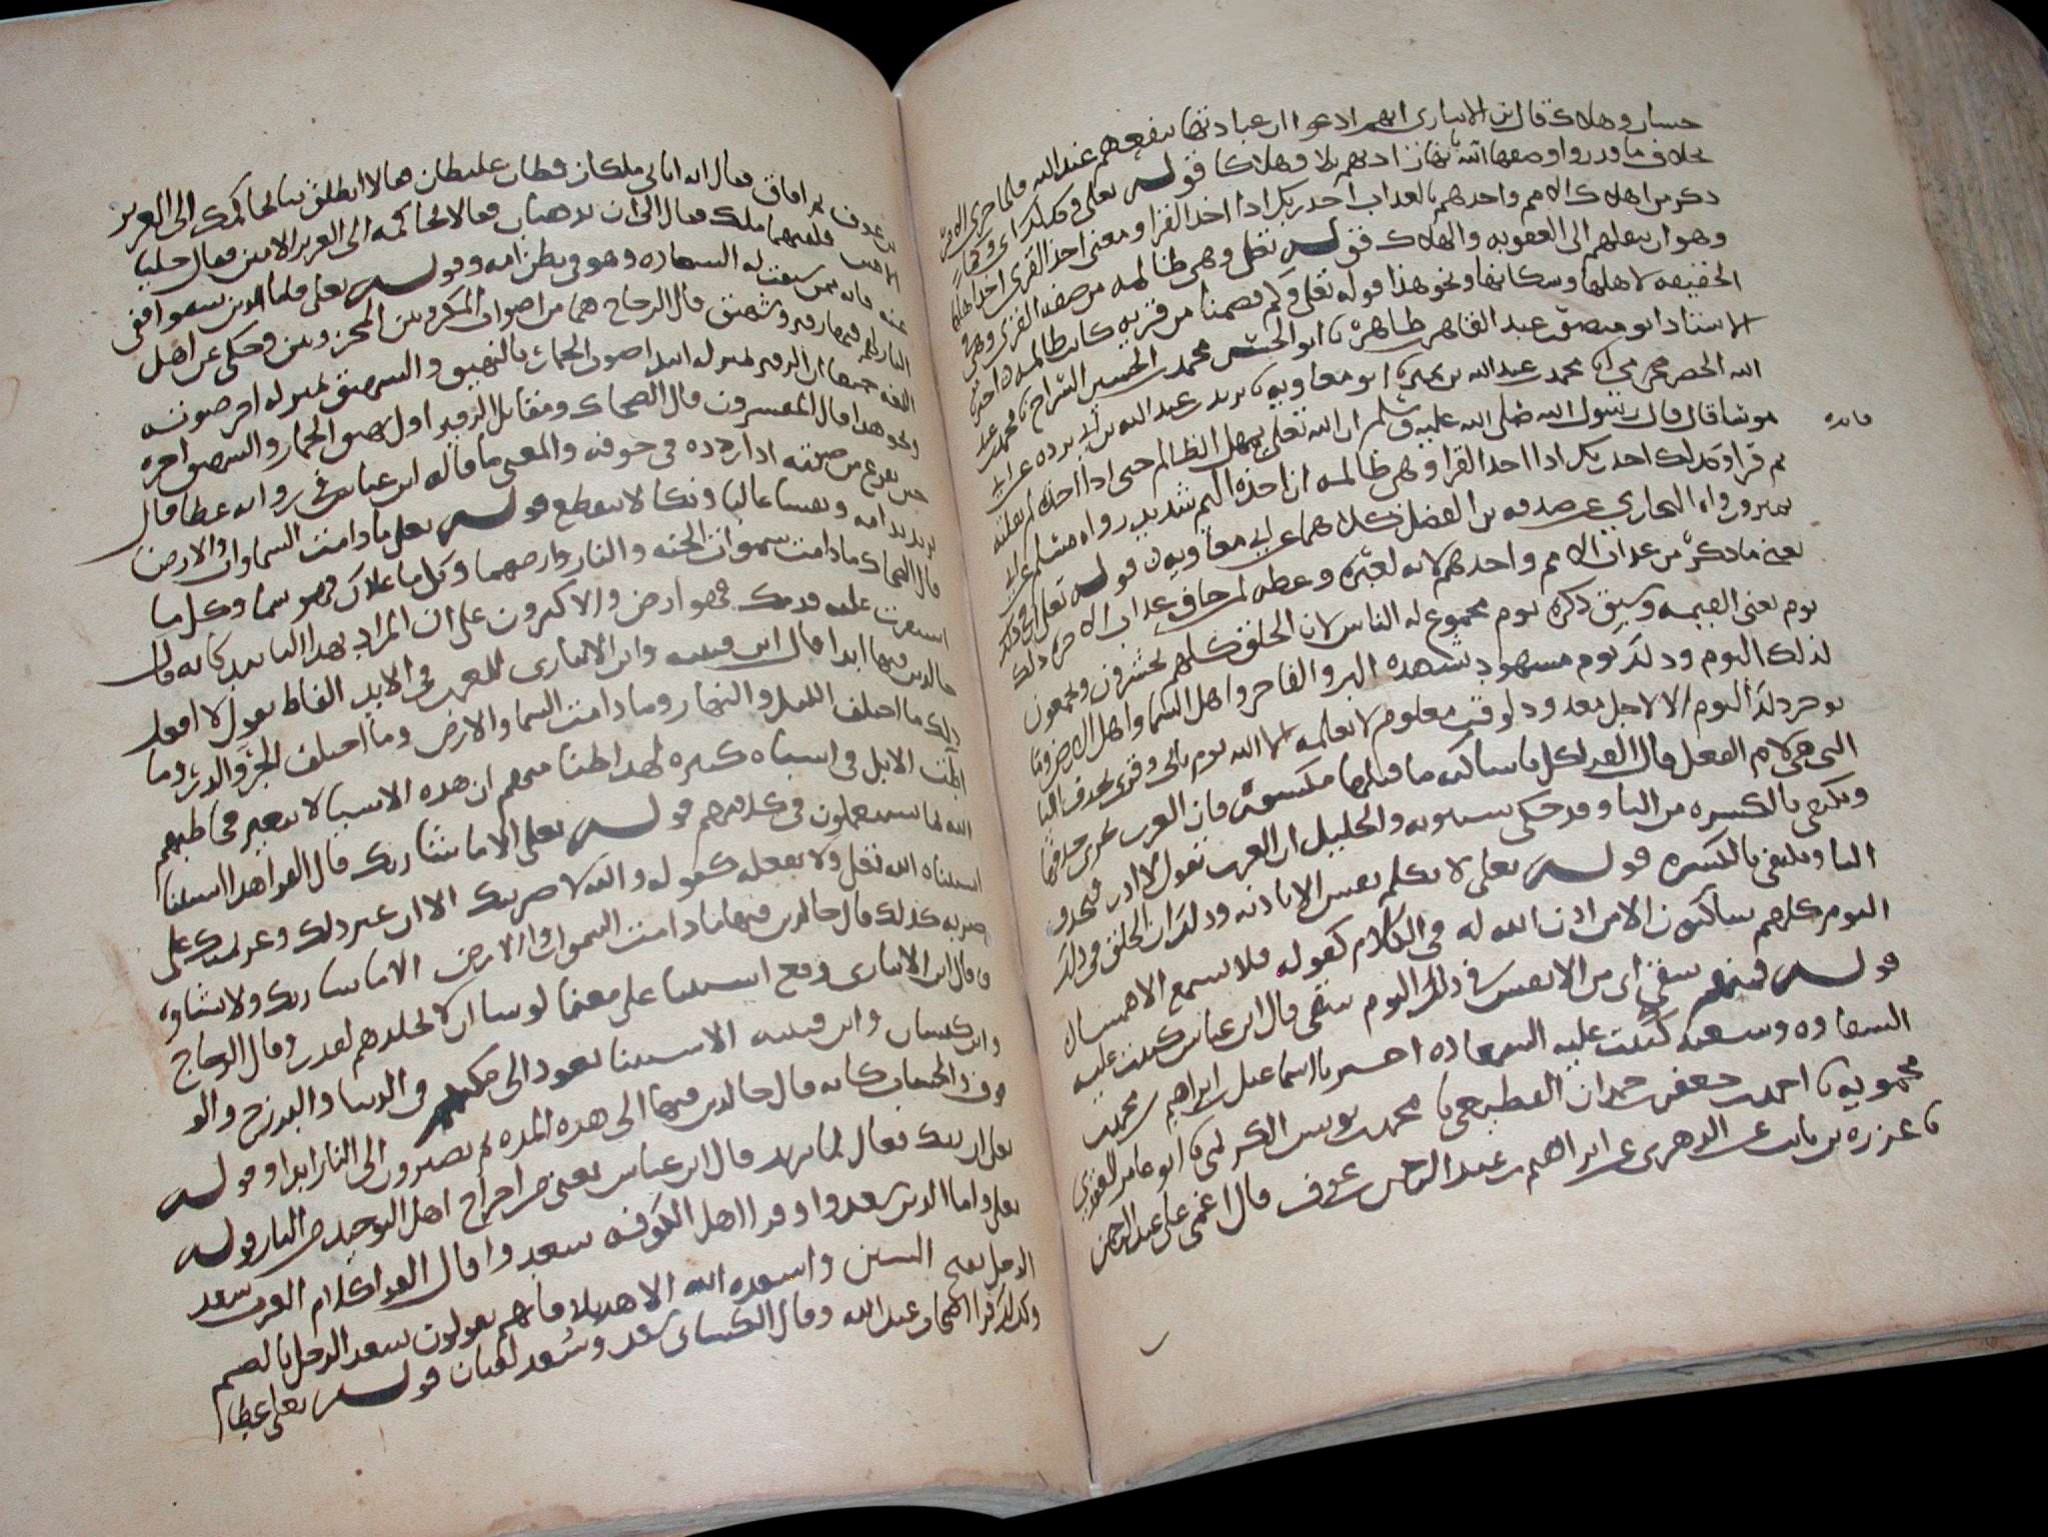 خسار وهلاك قال ابن الانباري انهم ادعوا ان عبادتها تنفعهم عند الله فلما جرى الامر
بخلاف ما قدروا وصفها الله بانها زادتهم بلا وهلاكا قوله تعالى وكذلك اي وكما
ذكر من اهلاك الامم واخذهم بالعذاب اخذ ربك اذا اخذ القرا ومعنى اخذ القرى اخذ اهلها
وهو ان ينقلهم الى العقوبه والهلاك قوله تعالى وهي ظالمه من صفه القرى وهي في
الحقيقه لاهلها وسكانها ونحو هذا قوله تعالى وكم قصمنا من قريه كانت ظالمه اخبرنا
الاستاذ ابو منصور عبد القاهر بن طاهر نا ابو الحسن محمد بن الحسن السراج نا محمد بن عبد
الله الحضرمي نا محمد بن عبد الله بن نمير نا ابو معاويه نا بريد بن عبد الله بن ابي برده عن ابي
موسا قال قال رسول الله صلى الله عليه وسلم ان الله تعالى يمهل الظالم حتى اذا اخذه لم يفلته
ثم قرا وكذلك اخذ ربك اذا اخذ القرا وهي ظالمه ان اخذه اليم شديد رواه مسلم عن ابن
نمير ورواه البخاري عن صدقه بن الفضل كلاهما عن ابي معاويه قوله تعالى ان في ذلك
يعني ما ذكر من عذاب الامم واخذهم لايه لعبره وعظه لمن خاف عذاب الاخره ذلك
يوم يعني القيمه وسبق ذكره يوم مجموع له الناس لان الخلق كلهم يحشرون ويجمعون
لذلك اليوم وذلك يوم مشهود يشهده البر والفاجر واهل السما واهل الارض وما
نوخر ذلك اليوم الا لاجل معدود لوقت معلوم لا يعلمه الا الله يوم ياتي وقرى بحذف اليا
التي هي لام الفعل قال الفرا كل يا ساكنه ما قبلها مكسور فان العرب تحذفها
وتكتفي بالكسره من اليا وقد حكى سيبويه والخليل ان العرب تقول لا ادر فتحذف
اليا وتكتفي بالكسره قوله تعالى لا تكلم نفس الا باذنه وذلك ان الخلق في ذلك
اليوم كلهم ساكتون الا من اذن الله له في الكلام كقوله فلا تسمع الا همسا
قوله فمنهم شقي اي من الانفس في ذلك اليوم شقي قال ابن عباس كتبت عليه
الشقاوه وسعيد كتبت عليه السعاده اخبرنا اسماعيل بن ابراهيم بن محمد بن
محمويه نا احمد بن جعفر بن حمدان القطيعي نا محمد بن يونس الكديمي نا ابو عامر العقدي
نا عزره بن ثابت عن الزهري عن ابراهيم بن عبد الرحمن بن عوف قال اغمي على عبد الرحمن
فائده
بن عوف ثم افاق فقال انه اتاني ملكان فظان غليظان فقالا انطلق بنا نحاكمك الى العزيز
الامين فلقيهما ملك فقال الى اين تذهبان فقالا نحاكمه الى العزيز الامين فقال خليا
عنه فانه ممن سبقت له السعاده وهو في بطن امه وقوله تعالى فاما الذين شقوا ففي
النار لهم فيها زفير وشهيق قال الزجاج هما من اصوات المكروبين المحزونين وحكي عن اهل
اللغه جميعا ان الزفير بمنزله ابتدا صوت الحمار بالنهيق والشهيق بمنزله اخر صوته
ونحو هذا قال المفسرون قال الضحاك ومقاتل الزفير اول نهيق الحمار والشهيق اخره
حين يفرغ من صوته اذا ردده في جوفه والمعنى ما قاله ابن عباس في روايه عطا قال
يريد ندامه ونفسا عاليا وبكا لا ينقطع قوله تعالى ما دامت السماوات والارض
قال الضحاك ما دامت سموات الجنه والنار وارضهما وكل ما علاك فهو سما وكل ما
استقرت عليه قدمك فهو ارض والاكثرون على ان المراد بهذا التابيد كانه قال
خالدين فيها ابدا قال ابن قتيبه وابن الانباري للعرب في الابد الفاظ يقول لا افعل
ذلك ما اختلف الليل والنهار وما دامت السما والارض وما اختلف الجره والدره وما
اطت الابل في اشباه كثيره لهذا ظنا منهم ان هذه الاشيا لا تتغير فخاطبهم
الله بما يستعملون في كلامهم قوله تعالى الا ما شا ربك قال الفرا هذا استثنا
استثناه الله تعالى ولا يفعله كقولك والله لاضربنك الا ان ارى غير ذلك وعزيمتك على
ضربه كذلك قال خالدين فيها ما دامت السموات والارض الا ما شا ربك ولا يشاوه
قال ابن الانباري وقع الاستثنا على معنى لو شا ان لا يخلدهم لقدر وقال الزجاج
وابن كيسان وابن قتيبه الاستثنا يعود الى مكثهم في الدنيا والبرزخ والو
قوف للحساب كانه قال خالدين فيها الى هذه المده ثم يصيرون الى النار ابدا وقوله
تعالى ان ربك فعال لما يريد قال ابن عباس يعني من اخراج اهل التوحيد من النار قوله
تعالى واما الذين سعدوا وقرا اهل الكوفه سعدوا قال الفرا كلام العرب سعد
الرجل بفتح السين واسعده الله الا هذيلا فانهم يقولون سعد الرجل بالضم
وكذلك قرا اصحاب عبد الله وقال الكسائي سعد وسعد لغتان قوله تعالى عطا